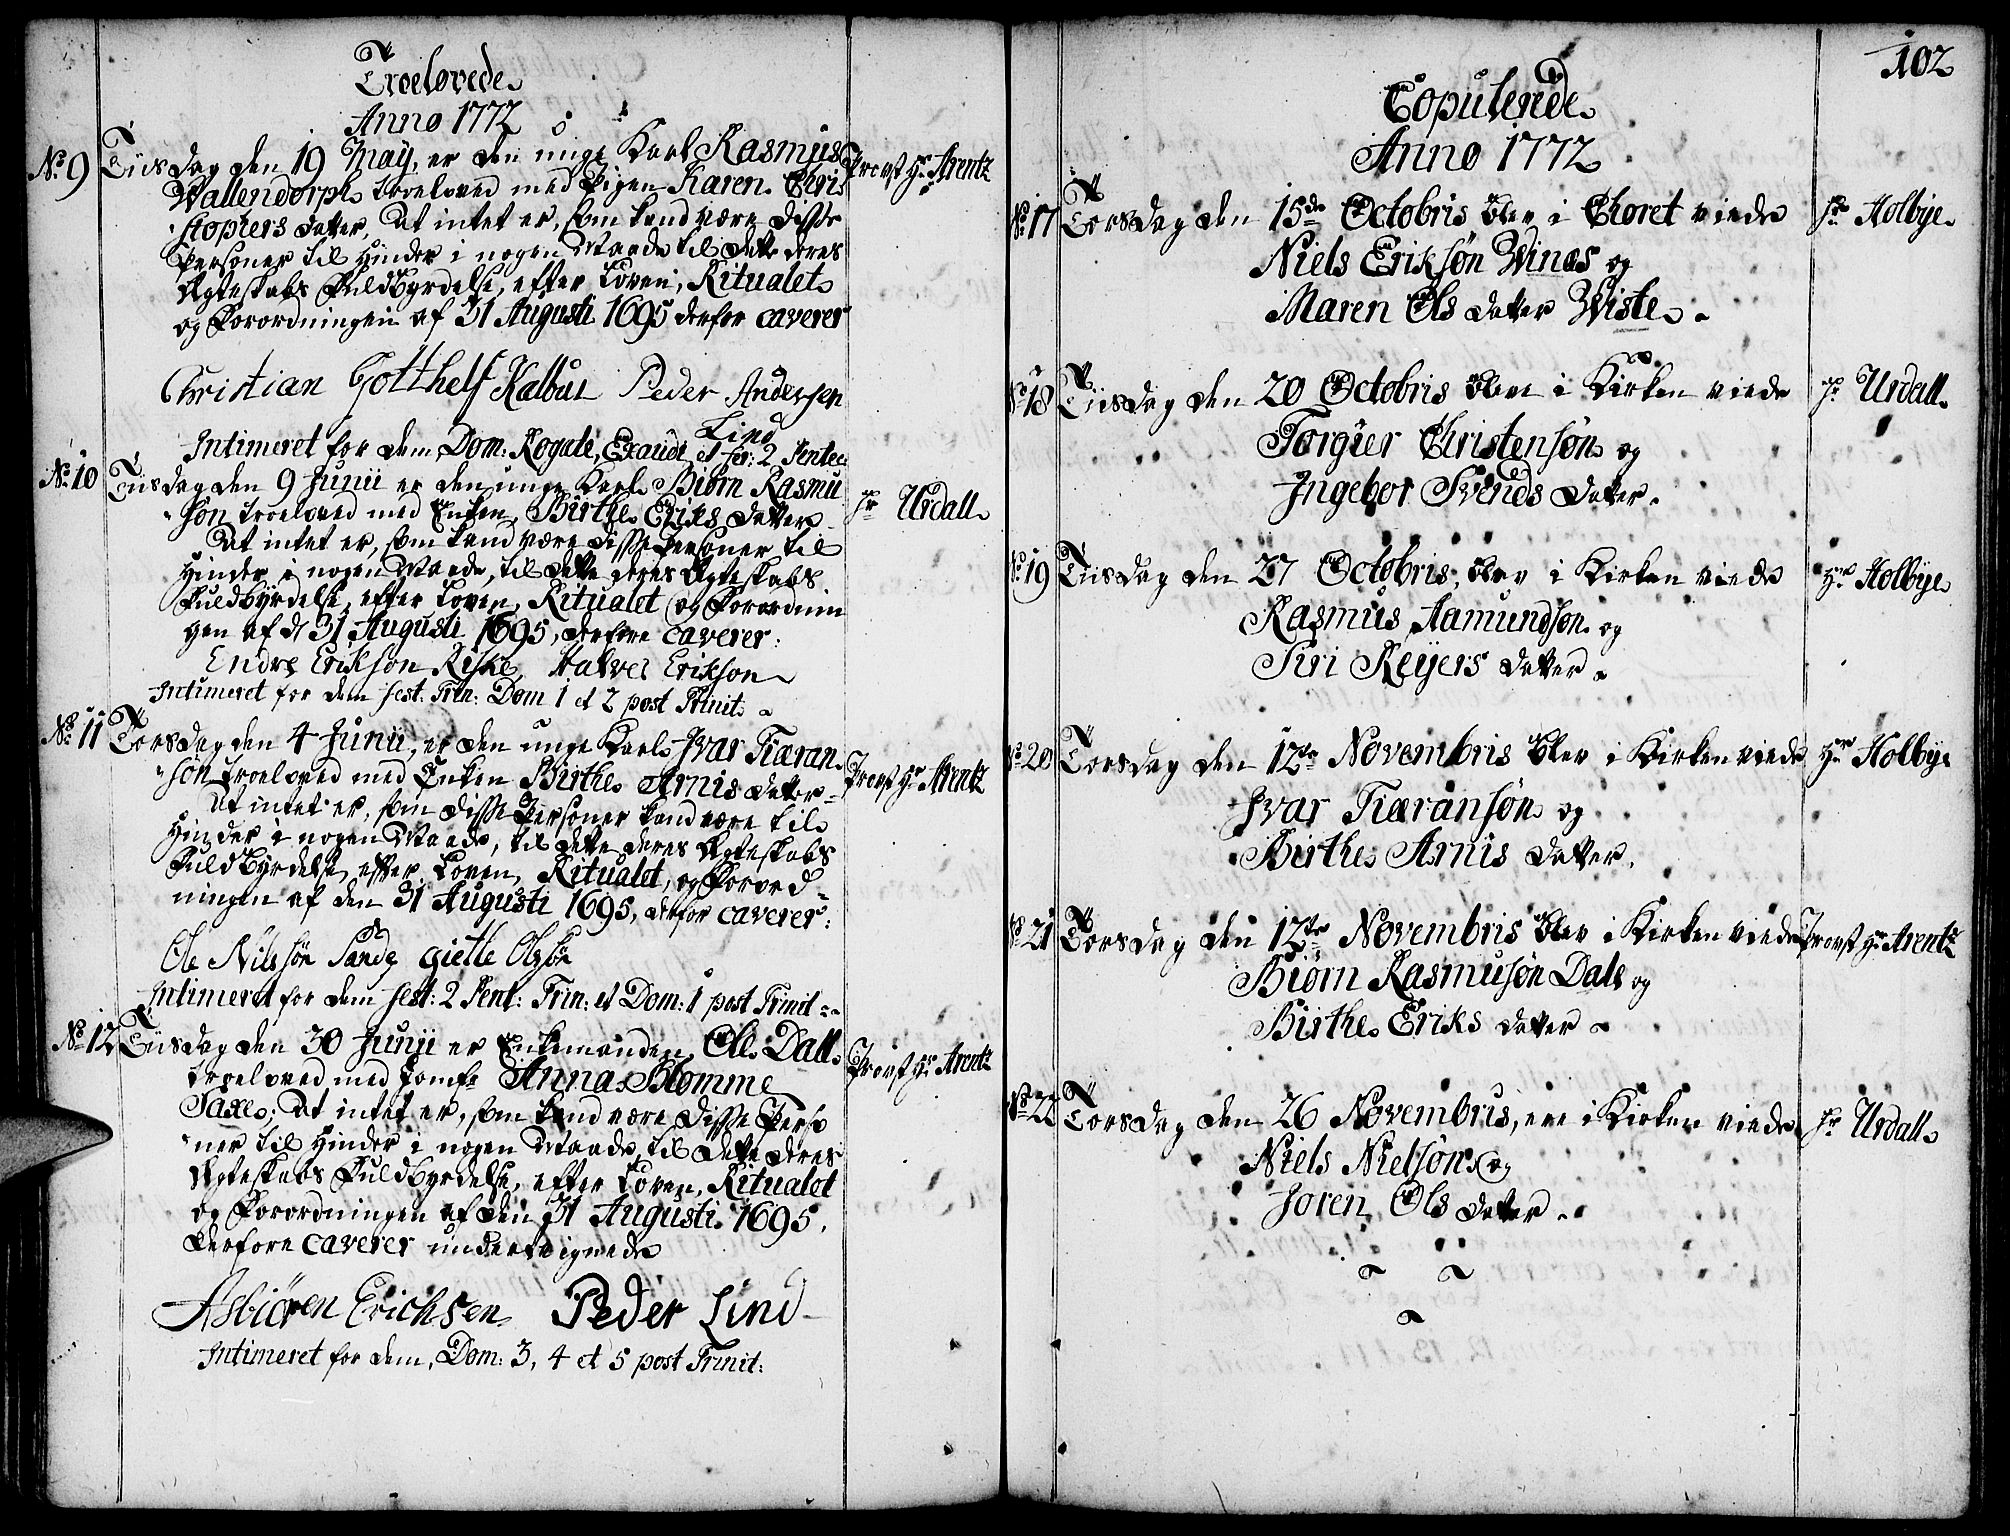 Troelovede
Anno 1772
No 9 Tiisdag den 19 May, er den unge Karl Rasmus Provst Hr Arentz
Wallendorph troeloved med Pigen Karen Chri
stophers datter, At intet er, som kand være disse
Personer til Hinder i nogen Maade til dette deres
Ægteskabs Fuldbyrdelse, efter Loven, Ritualet
og Forordningen af 31 Augusti 1695 derfor caverer
Christian Gotthelf Kalbut Peder Andersen
Lind
Intimeret for dem Dom: Rogate, Exaudi et fer: 2 Pentec
No 10 Tiisdag den 9 Junii er den unge Karl Biørn Rasmu
søn troeloved med Enken Birthe Eriks datter Hr Urdall
At intet er, som kand være disse Personer til
Hinder i nogen Maade, til dette deres Ægteskabs
Fuldbyrdelse, efter Loven, Ritualet og Forordnin
gen af d 31 Augusti 1695, derfore caverer:
Endre Erikson Riske, Halvel Erikson
Intimeret for dem fest: Trin: Dom 1 et 2 post Trinit:
No 11 Torsdag den 4 Junii, er den unge Karl Ivar Tiæran
søn troeloved med Enken Birthe Arnis datter Provst Hr Arentz
At intet er, som disse Personer kand være til
Hinder i nogen Maade, til dette deres Ægteskabs
Fuldbyrdelse, efter Loven, Ritualet, og Forord
ningen af den 31 Augusti 1695, derfor caverer:
Ole Nilssøn Sande Gielle Olssøn
Intimeret for dem fest: 2 Pent: Trin: et Dom: 1 post Trinit
No 12 Tiisdag den 30 Junii er Enkemanden Ole Dall
troeloved med Jomfr Anna Blomme Provst Hr Arentz
Saxe; At intet er, som kand være disse Perso
ner til Hinder i nogen Maade, til dette deres
Ægteskabs Fuldbyrdelse, efter Loven, Ritualet
og Forordningen af den 31 Augusti 1695,
derfore caverer underteignede
Asbiören Erichsen Peder Lind
Intimeret for dem, Dom: 3, 4 et 5 post Trinit:
102
Copulerede
Anno 1772
No 17 Torsdag den 15de Octobris blev i Choret viede Hr Holbye
Niels Eriksøn Winæs og
Maren Ols datter Wiste
No 18 Tiisdag den 20 Octobris blev i Kirken viede Hr Urdall
Torgier Christensøn og
Ingebor Svends datter
No 19 Tiisdag den 27 Octobris, blev i Kirken viede Hr Holbye
Rasmus Aamundsøn og
Siri Reyers datter
No 20 Torsdag den 12te Novembris blev i Kirken viede Hr Holbye
Ivar Tiæransøn og
Birthe Arnis datter
No 21 Torsdag den 12te Novembris blev i Kirken viede Provst Hr Arentz
Biørn Rasmusøn Dale og
Birthe Eriks datter
No 22 Torsdag den 26 Novembris, ere i Kirken viede Hr Urdall
Niels Nielsøn og
Joren Ols datter